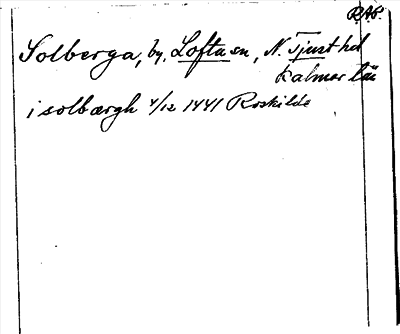 RAP.
Solberga, by, Lofta sn, N. Tjust hd
Kalmar län
i solbærgh 4/12 1441 Roskilde